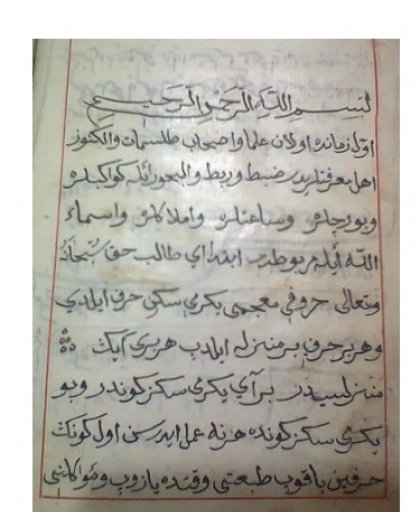 بسم الله الرحمن الرحيم
اول زمانده اولان علما واصحاب طلسمات والكنوز
اهل معرفتلردر ضبط وربط والبخور ائله كواكبلره
وبورجلره وساعتلره واملاكلره واسماء
الله ائله مربوطدر ابتدا اي طالب حق سبحانه
وتعالى حروفي معجمى يكرمى سكز حرف ايلدي
وهر حرف بر منزله ايلدى هر برى آيك
منزلسيدر بر آي يكرمى سكز كوندر وبو
يكرمى سكز كونده هر نه عمل ايدرسن اول كونك
حرفين باقوب طبعتى وقتده يازوب وموكلنى